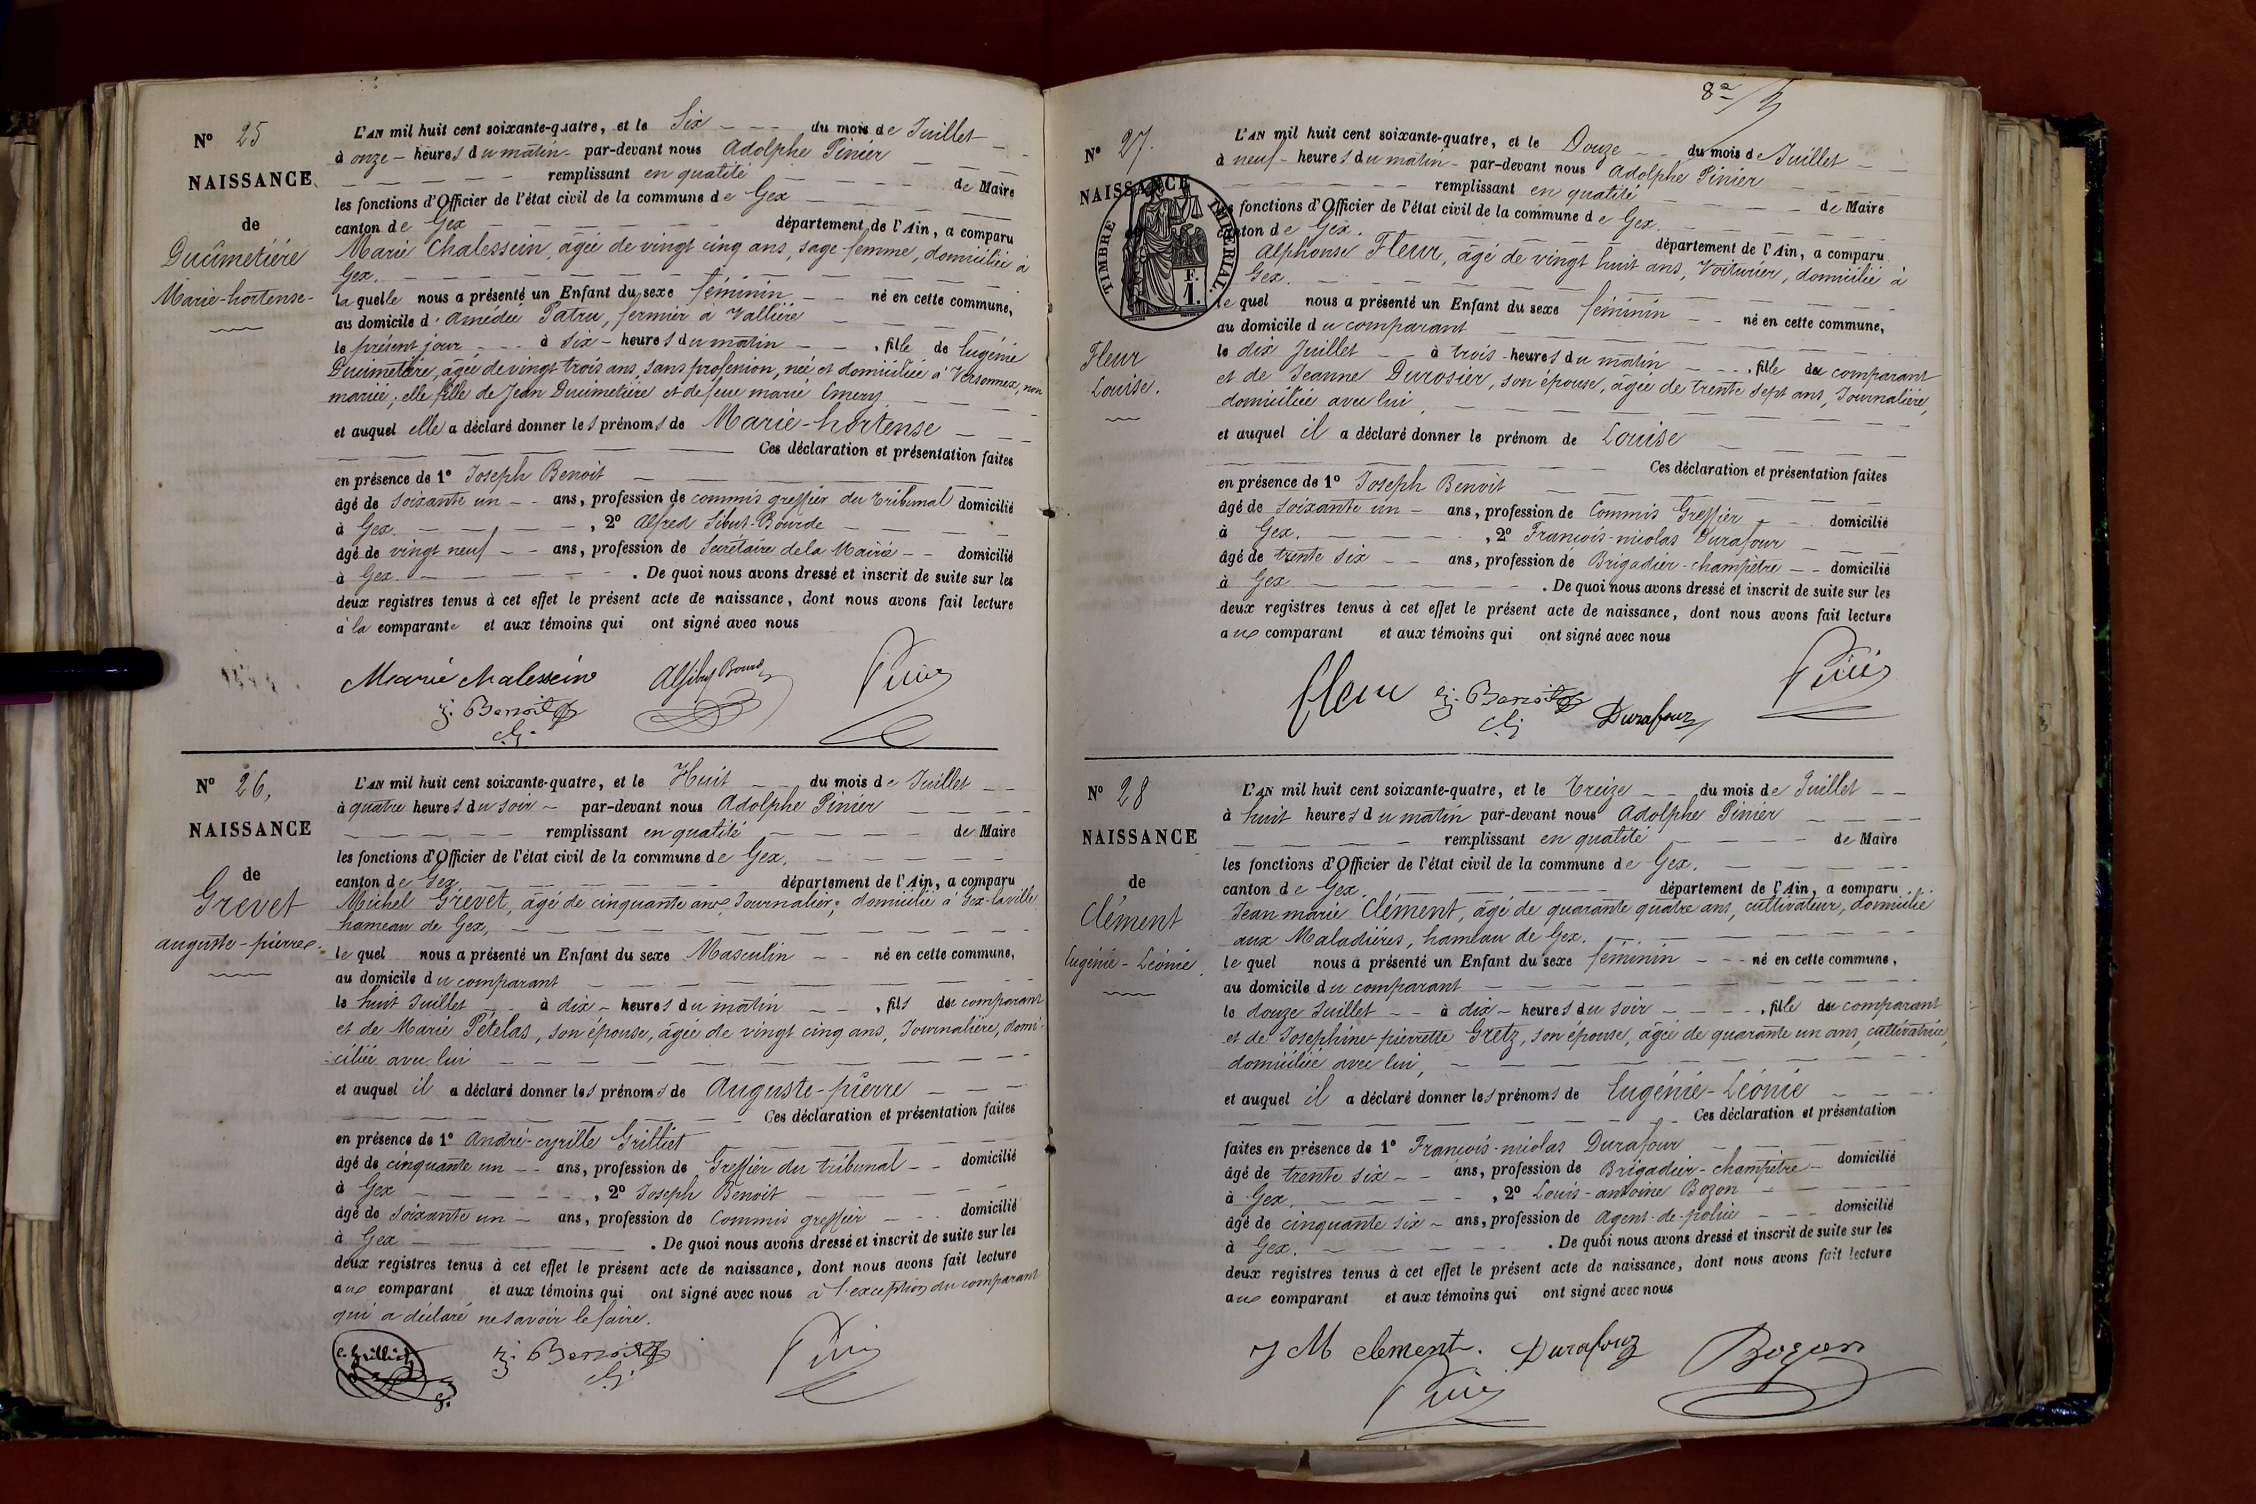 N° 25
NAISSANCE
de
Ducimetière
Marie-hortense-
L'AN mil huit cent soixante-quatre, et le Six du mois de Juillet
à onze heures du matin par-devant nous Adolphe Pinier
remplissant en qualité de Maire
les fonctions d'Officier de l'état civil de la commune de Gex
canton de Gex département de l'Ain, a comparu
Marie Chalessein, âgée de vingt cinq ans, sage-femme, domiciliée à
Gex.
la quelle nous a présenté un Enfant du sexe féminin né en cette commune,
au domicile d'Amédée Patru, fermier à Vallière
le présent jour à six heures du matin, fille de Eugénie
Ducimetière, âgée de vingt trois ans, sans profession, née et domiciliée à Versonnex, non
mariée; elle fille de Jean Ducimetière et de feue marie Emery
et auquel elle a déclaré donner les prénoms de Marie-hortense
Ces déclaration et présentation faites
en présence de 1° Joseph Benoit
âgé de soixante un ans, profession de commis greffier du tribunal domicilié
à Gex. , 2° Alfred Sibut-Bourde
âgé de vingt neuf ans, profession de Secrétaire de la Mairie domicilié
à Gex. . De quoi nous avons dressé et inscrit de suite sur les
deux registres tenus à cet effet le présent acte de naissance, dont nous avons fait lecture
à la comparante et aux témoins qui ont signé avec nous
Marie chalessein
j. Benoit
N° 26,
NAISSANCE
de
Grevet
auguste-pierre
L'AN mil huit cent soixante-quatre, et le Huit du mois de Juillet
à quatre heures du soir par-devant nous Adolphe Pinier
remplissant en qualité de Maire
les fonctions d'Officier de l'état civil de la commune de Gex,
canton de Gex département de l'Ain, a comparu
Michel Grevet, âgé de cinquante ans, Journalier, domicilié à Gex-la-ville
hameau de Gex,
le quel nous a présenté un Enfant du sexe Masculin né en cette commune,
au domicile du comparant
le huit Juillet à dix heures du matin, fils du comparant
et de Marie Pételas, son épouse, âgée de vingt cinq ans, Journalière, domi-
ciliée avec lui
et auquel il a déclaré donner les prénoms de Auguste-pierre
Ces déclaration et présentation faites
en présence de 1° André-cyrille Grilliet
âgé de cinquante un ans, profession de Greffier du tribunal domicilié
à Gex , 2° Joseph Benoit
âgé de soixante un ans, profession de Commis greffier domicilié
à Gex . De quoi nous avons dressé et inscrit de suite sur les
deux registres tenus à cet effet le présent acte de naissance, dont nous avons fait lecture
aux comparant et aux témoins qui ont signé avec nous à l'exception du comparant
qui a déclaré ne savoir le faire.
c. Grilliet
j. Benoit
N° 27.
NAISSANCE
TIMBRE IMPERIAL
F.
1.
Fleur
Louise.
L'AN mil huit cent soixante-quatre, et le Douze du mois de Juillet
à neuf heures du matin par-devant nous Adolphe Pinier
remplissant en qualité de Maire
les fonctions d'Officier de l'état civil de la commune de Gex
canton de Gex. département de l'Ain, a comparu
Alphonse Fleur, âgé de vingt huit ans, Voiturier, domicilié à
Gex.
le quel nous a présenté un Enfant du sexe féminin né en cette commune,
au domicile du comparant
le dix Juillet à trois heures du matin, fille du comparant
et de Jeanne Durosier, son épouse, âgée de trente sept ans, Journalière,
domiciliée avec lui,
et auquel il a déclaré donner le prénom de Louise
Ces déclaration et présentation faites
en présence de 1° Joseph Benoit
âgé de soixante un ans, profession de Commis Greffier domicilié
à Gex. , 2° François-nicolas Durafour
âgé de trente six ans, profession de Brigadier-champêtre domicilié
à Gex . De quoi nous avons dressé et inscrit de suite sur les
deux registres tenus à cet effet le présent acte de naissance, dont nous avons fait lecture
aux comparant et aux témoins qui ont signé avec nous
fleur j. Benoit Durafour
N° 28
NAISSANCE
de
Clément
Eugénie-Léonie
L'AN mil huit cent soixante-quatre, et le Treize du mois de Juillet
à huit heures du matin par-devant nous Adolphe Pinier
remplissant en qualité de Maire
les fonctions d'Officier de l'état civil de la commune de Gex.
canton de Gex. département de l'Ain, a comparu
Jean marie Clément, âgé de quarante quatre ans, cultivateur, domicilié
aux Maladières, hameau de Gex.
le quel nous a présenté un Enfant du sexe féminin né en cette commune,
au domicile du comparant
le douze Juillet à dix heures du soir, fille du comparant
et de Josephine-pierrette Gretz, son épouse, âgée de quarante un ans, cultivatrice,
domiciliée avec lui,
et auquel il a déclaré donner les prénoms de Eugénie-Léonie
Ces déclaration et présentation
faites en présence de 1° François-nicolas Durafour
âgé de trente six ans, profession de Brigadier-champêtre domicilié
à Gex. , 2° Louis-antoine Bozon
âgé de cinquante six ans, profession de Agent-de-police domicilié
à Gex. . De quoi nous avons dressé et inscrit de suite sur les
deux registres tenus à cet effet le présent acte de naissance, dont nous avons fait lecture
aux comparant et aux témoins qui ont signé avec nous
J M clement. Durafour Bozon